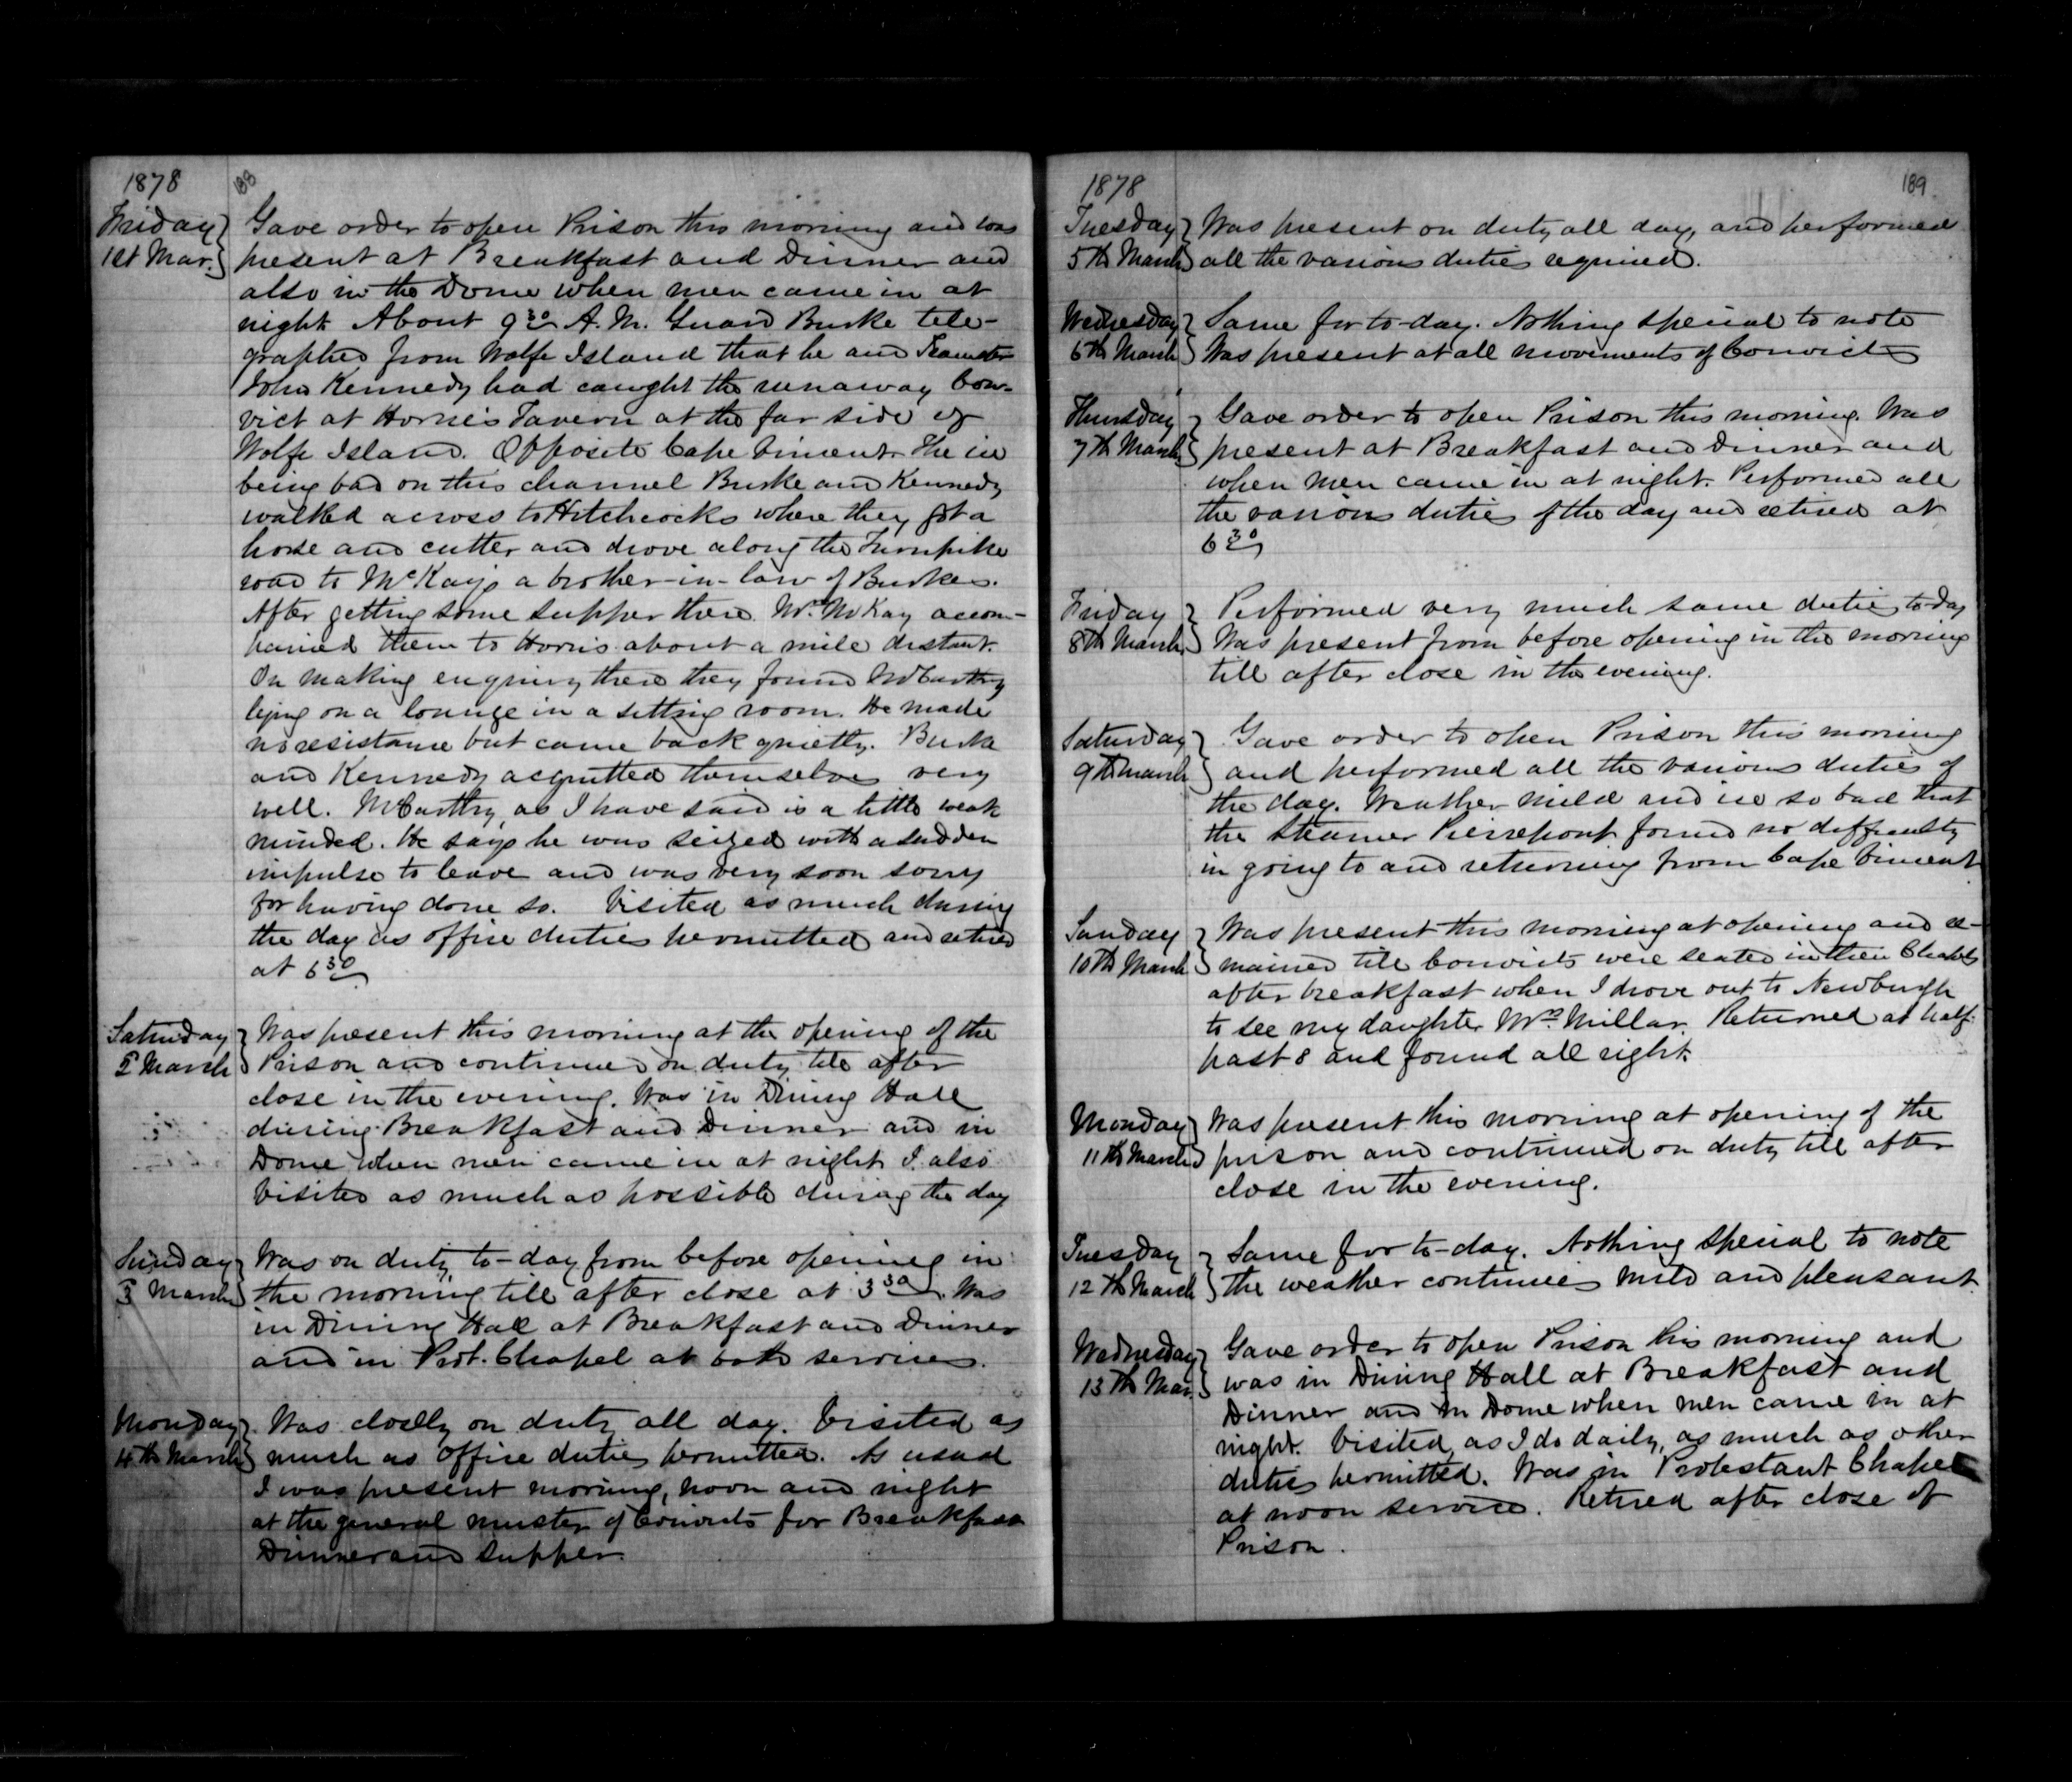 1878
188
Friday
1st Mar.
Gave order to open Prison this morning and was
present at Breakfast and Dinner and
also in the Dome when men came in at
night About 9 30 A.M. Guard Burke tele-
graphed from Wolfe Island that he and Teamster
John Kennedy had caught the runaway Con-
vict at Horne's Tavern at the far side of
Wolfe Island. Opposite Cape Vincent. The ice
being bad on this channel Burke and Kennedy
walked across to Hitchcocks where they got a
horse and cutter and drove along the Turnpike
road to McKay's a brother-in-law of Burkes.
After getting some supper there Mr. McKay accom-
panied them to Horns about a mile distant.
On making enquiry there they found McCarthy
lying on a lounge in a sitting room. He made
no resistance but came back quietly. Burke
and Kennedy acquitted themselves very
well. McCarthy, as I have said is a little weak
minded. He says he was seized with a sudden
impulse to leave and was very soon sorry
for having done so. Visited as much during
the day as office duties permitted and retired
at 6 30
Saturday
2 March
Was present this morning at the opening of the
Prison and continued on duty till after
close in the evening. Was in Dining Hall
during Breakfast and Dinner and in
Dome when men came in at night I also
visited as much as possible during the day
Sunday
3 March
Was on duty to-day from before opening in
the morning till after close at 3 30. Was
in Dining Hall at Breakfast and Dinner
and in Prot. Chapel at both services.
Monday
4th March
Was closely on duty all day. Visited as
much as office duties permitted. As usual
I was present morning, noon and night
at the general muster of Convicts for Breakfast
Dinner and Supper.
1878
189
Tuesday
5th March
Was present on duty all day, and performed
all the various duties required.
Wednesday
6th March
Same for to-day. Nothing special to note
Was present at all movements of Convicts
Thursday
7th March
Gave order to open Prison this morning. Was
present at Breakfast and Dinner and
when men came in at night. Performed all
the various duties of the day and retired at
6 30
Friday
8th March
Performed very much same duties to-day
Was present from before opening in the morning
till after close in the evening.
Saturday
9th March
Gave order to open Prison this morning
and performed all the various duties of
the day. Weather mild and ice so bad that
the Steamer Pierrepont found no difficulty
in going to and returning from Cape Vincent
Sunday
10th March
Was present this morning at opening and re-
mained till Convicts were seated in their Chapels
after breakfast when I drove out to Newburgh
to see my daughter Mrs. Millar. Returned at half
past 8 and found all right.
Monday
11th March
Was present this morning at opening of the
prison and continued on duty till after
close in the evening.
Tuesday
12th March
Same for to-day. Nothing special to note
the weather continues mild and pleasant.
Wednesday
13th Mar.
Gave order to open Prison this morning and
was in Dining Hall at Breakfast and
Dinner and in Dome when men came in at
night. Visited, as I do daily, as much as other
duties permitted. Was in Protestant Chapel
at noon service. Retired after close of
Prison.